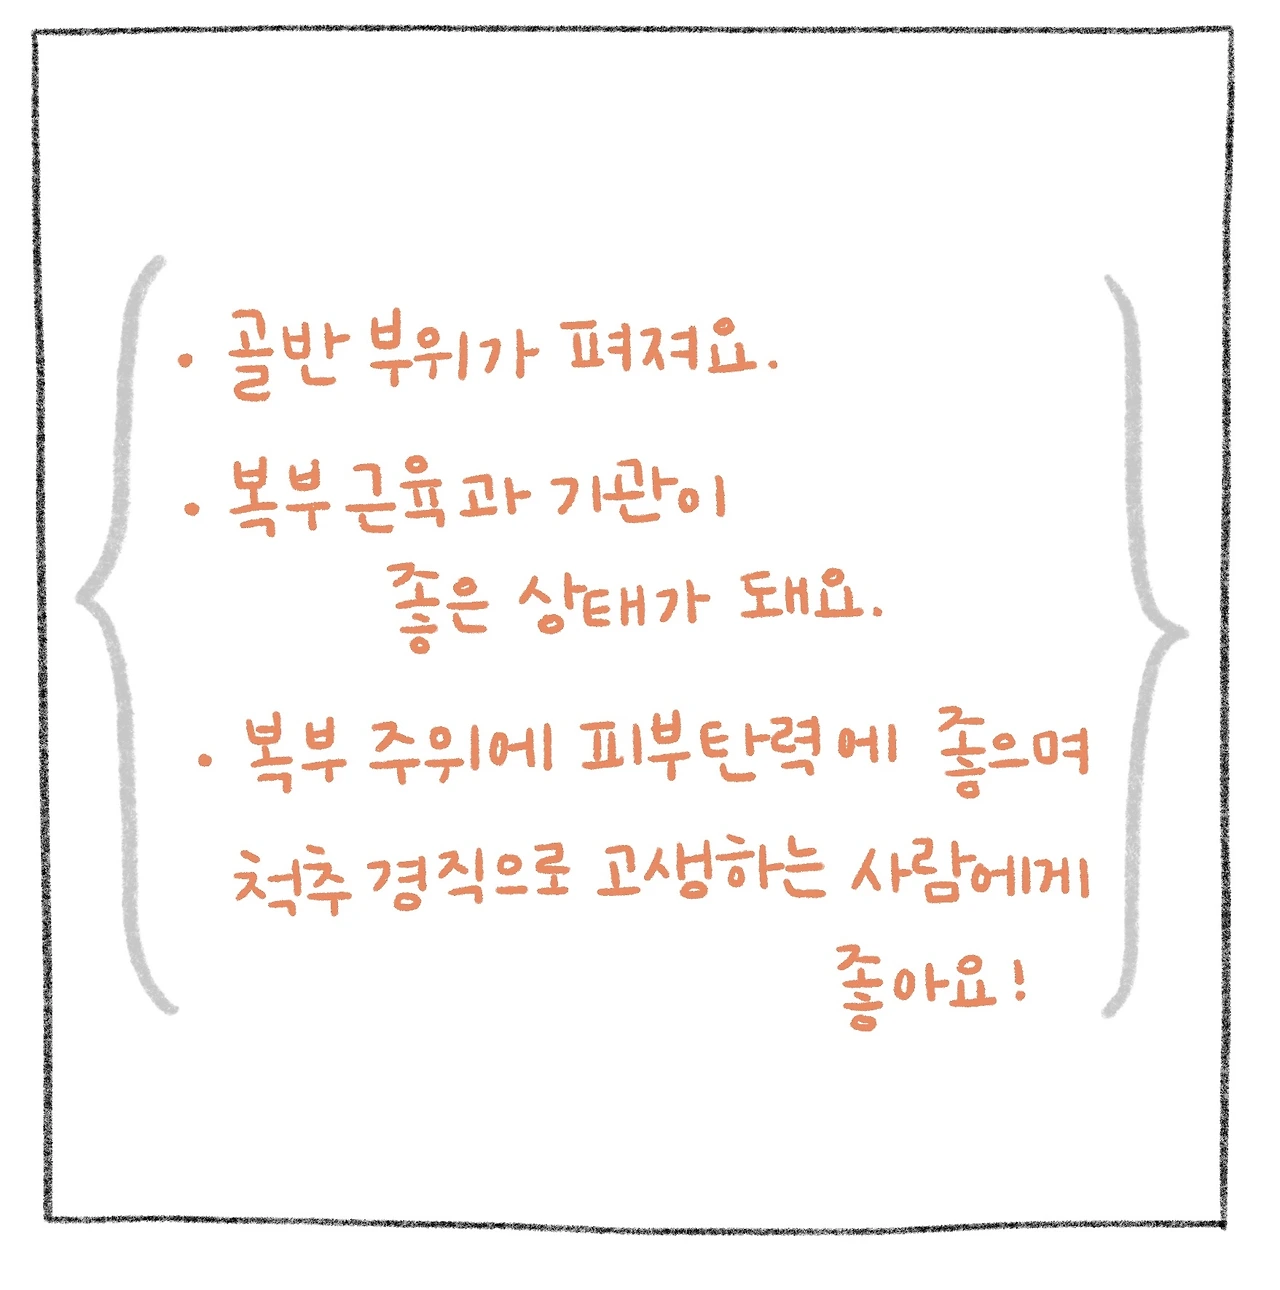 • 골반 부위가 펴져요.
• 복부 근육과 기관이
좋은 상태가 돼요.
• 복부 주위에 피부탄력에 좋으며
척추 경직으로 고생하는 사람에게
좋아요!